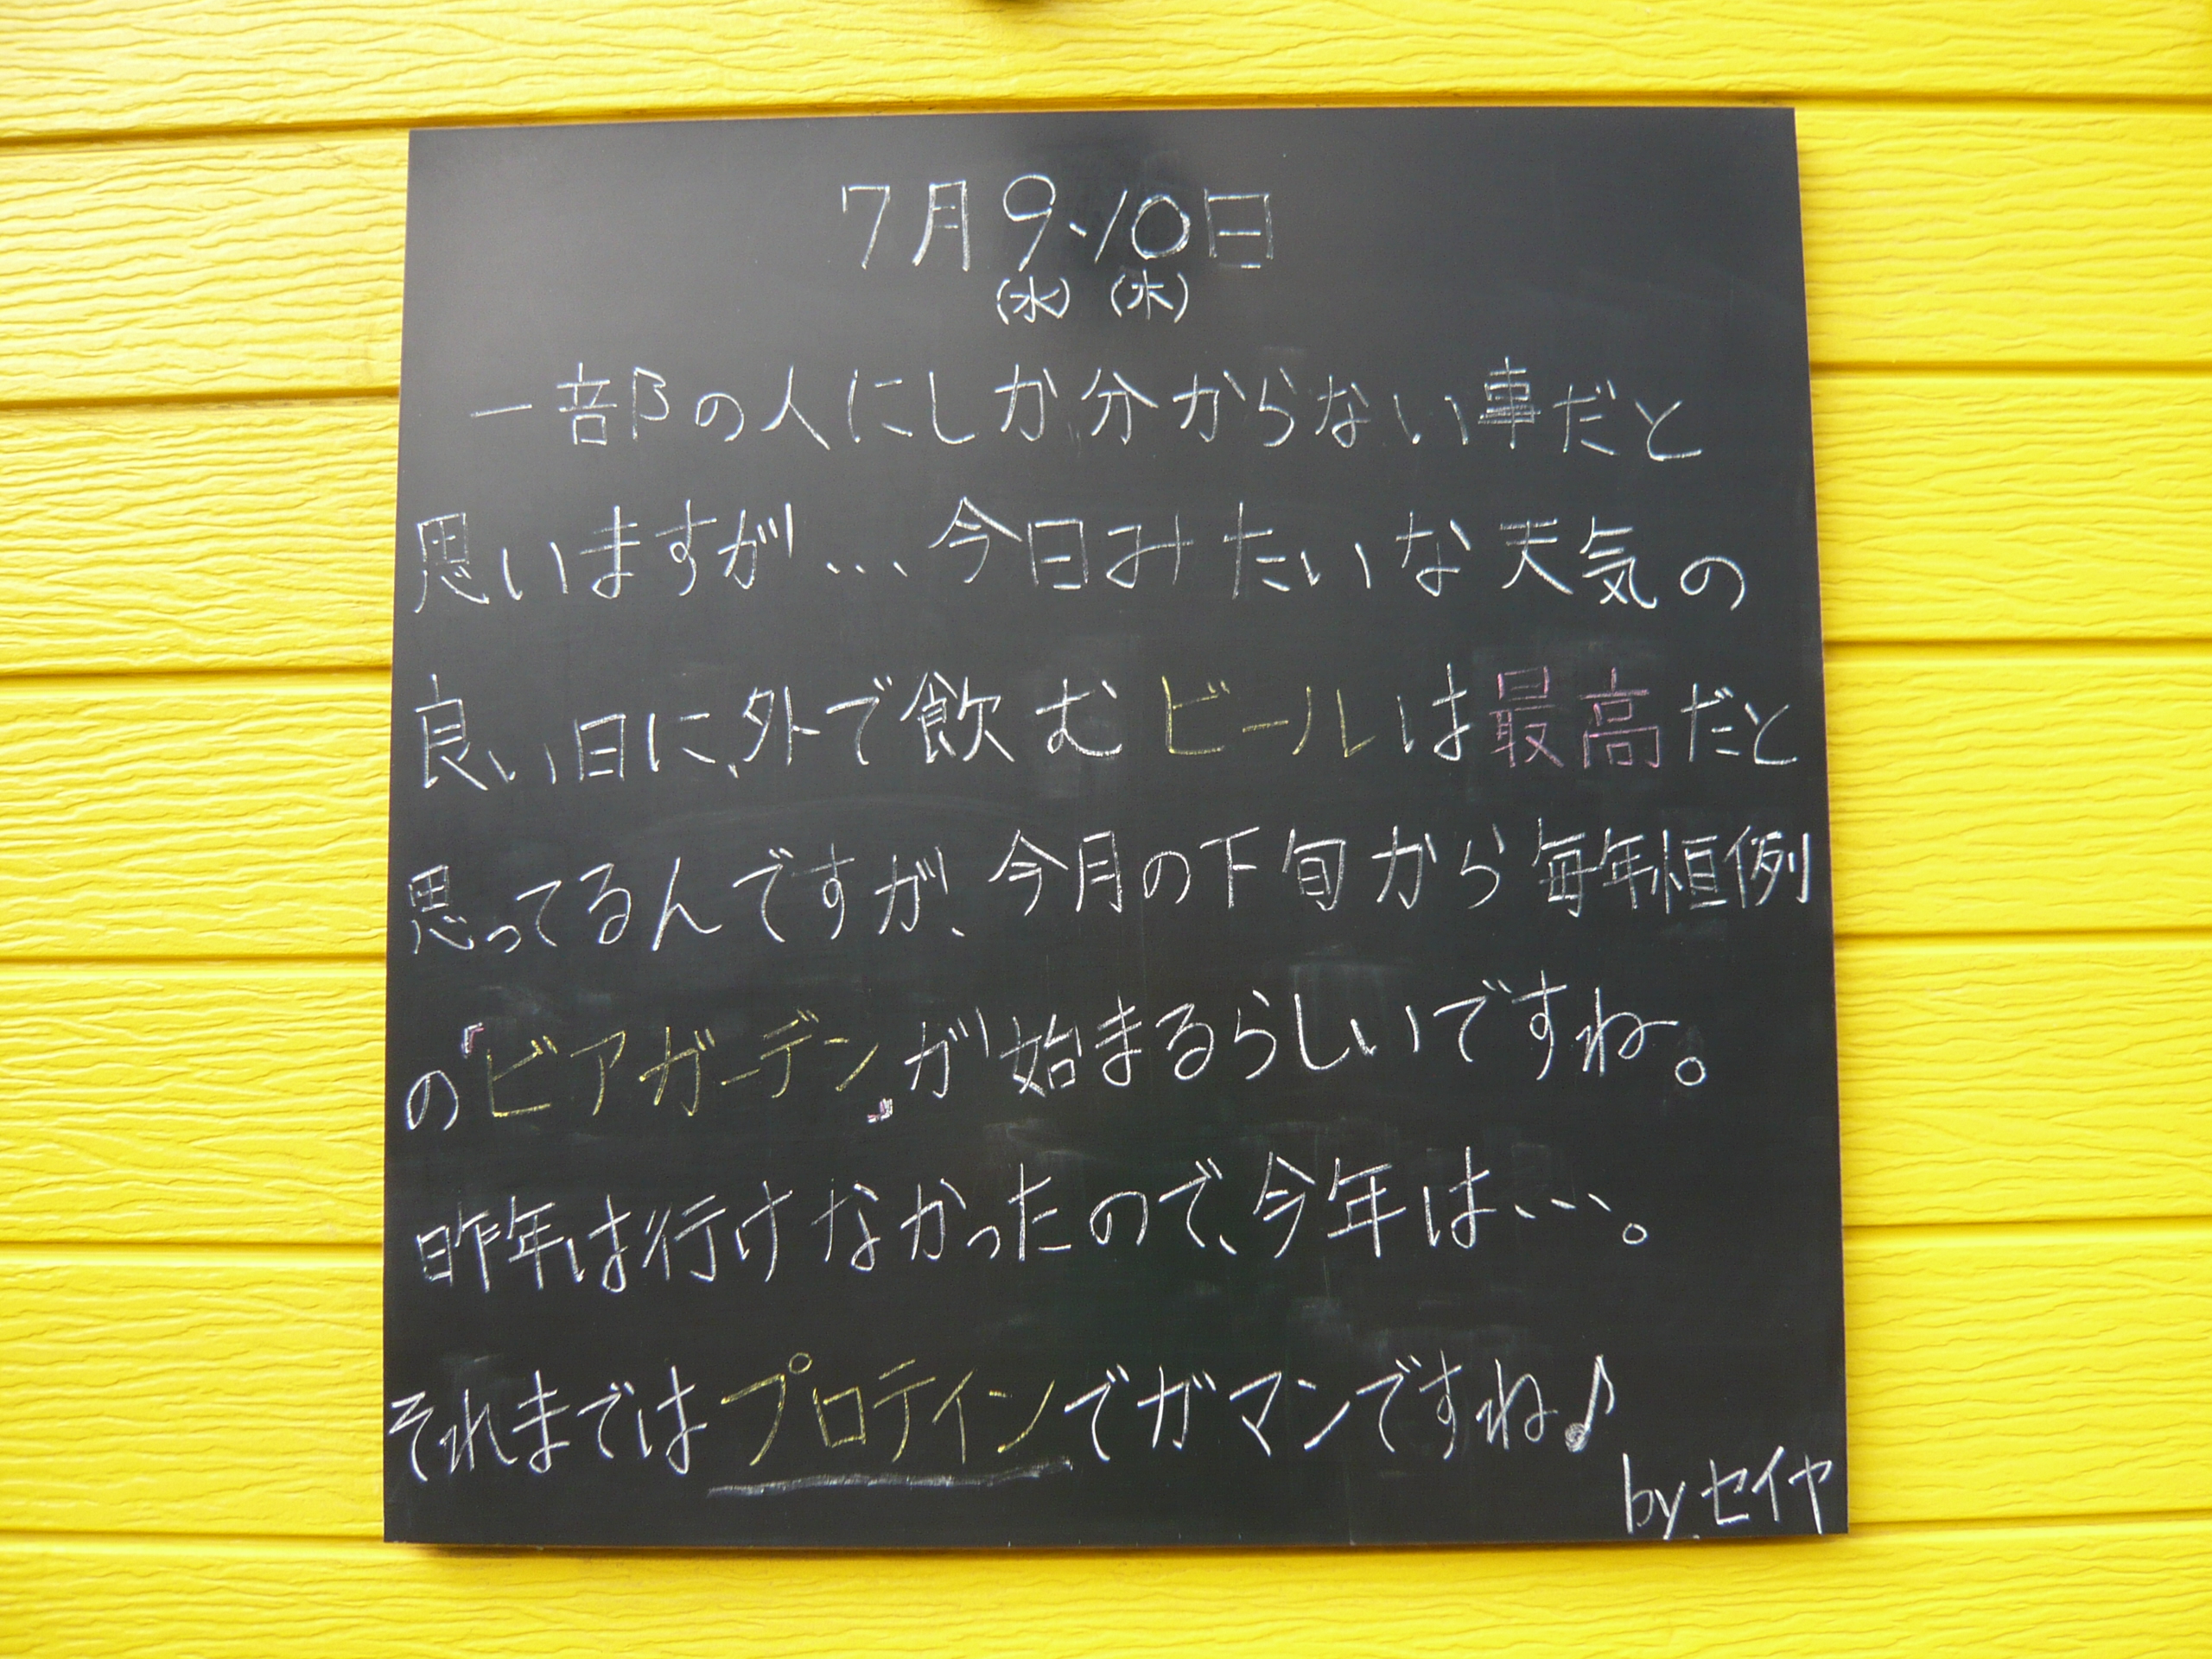 7月9、10日
(水) (木)
一部の人にしか分からない事だと
思いますが…今日みたいな天気の
良い日に、外で飲むビールは最高だと
思ってるんですが、今月の下旬から毎年恒例
の『ビアガーデン』が始まるらしいですね。
昨年は行けなかったので、今年は…。
それまではプロテインでガマンですね♪
by セイヤ